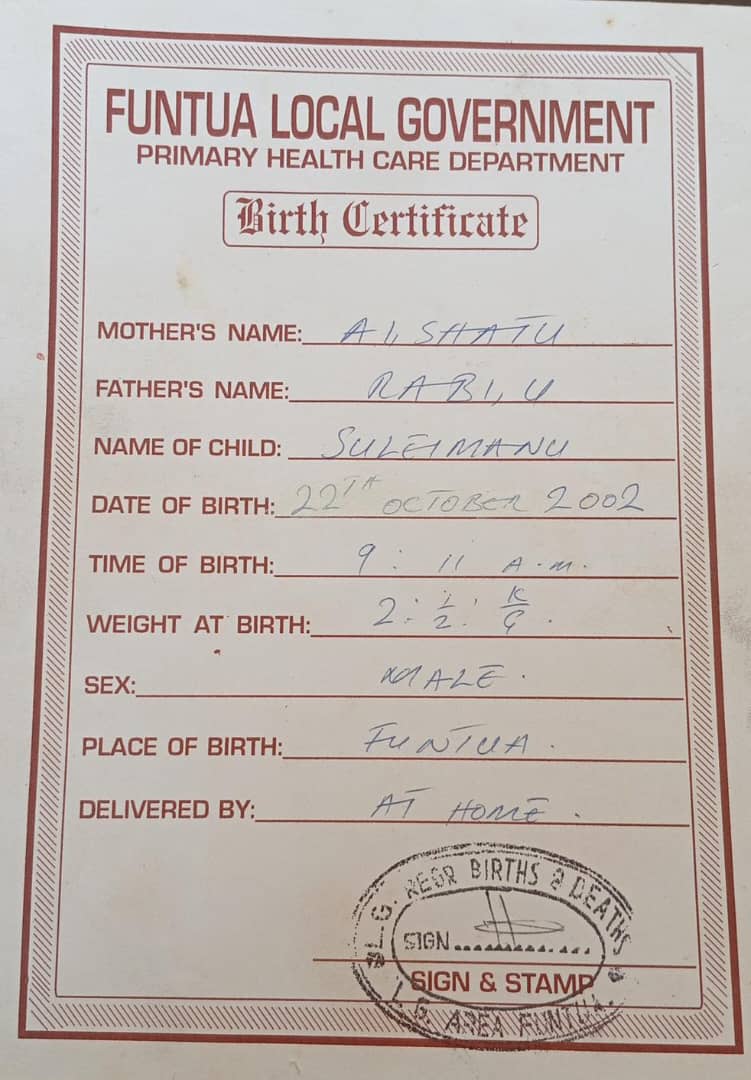 FUNTUA LOCAL GOVERNMENT
PRIMARY HEALTH CARE DEPARTMENT
Birth Certificate
MOTHER'S NAME: AI, SHATU
FATHER'S NAME: RABI, U
NAME OF CHILD: SULEIMANU
DATE OF BIRTH: 22TH OCTOBER 2002
TIME OF BIRTH: 9 : 11 A.M.
WEIGHT AT BIRTH: 2 : 1/2 : K/G .
SEX: MALE .
PLACE OF BIRTH: FUNTUA .
DELIVERED BY: AT HOME .
L.G. REGR BIRTHS & DEATHS
SIGN ................
SIGN & STAMP
L.G. AREA FUNTUA.